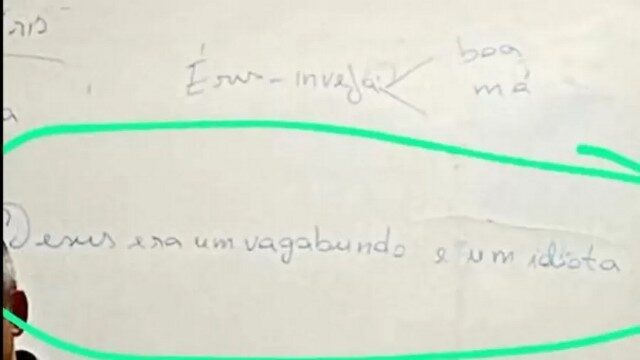 Éris - inveja
boa
má
a
Jesus era um vagabundo e um idiota